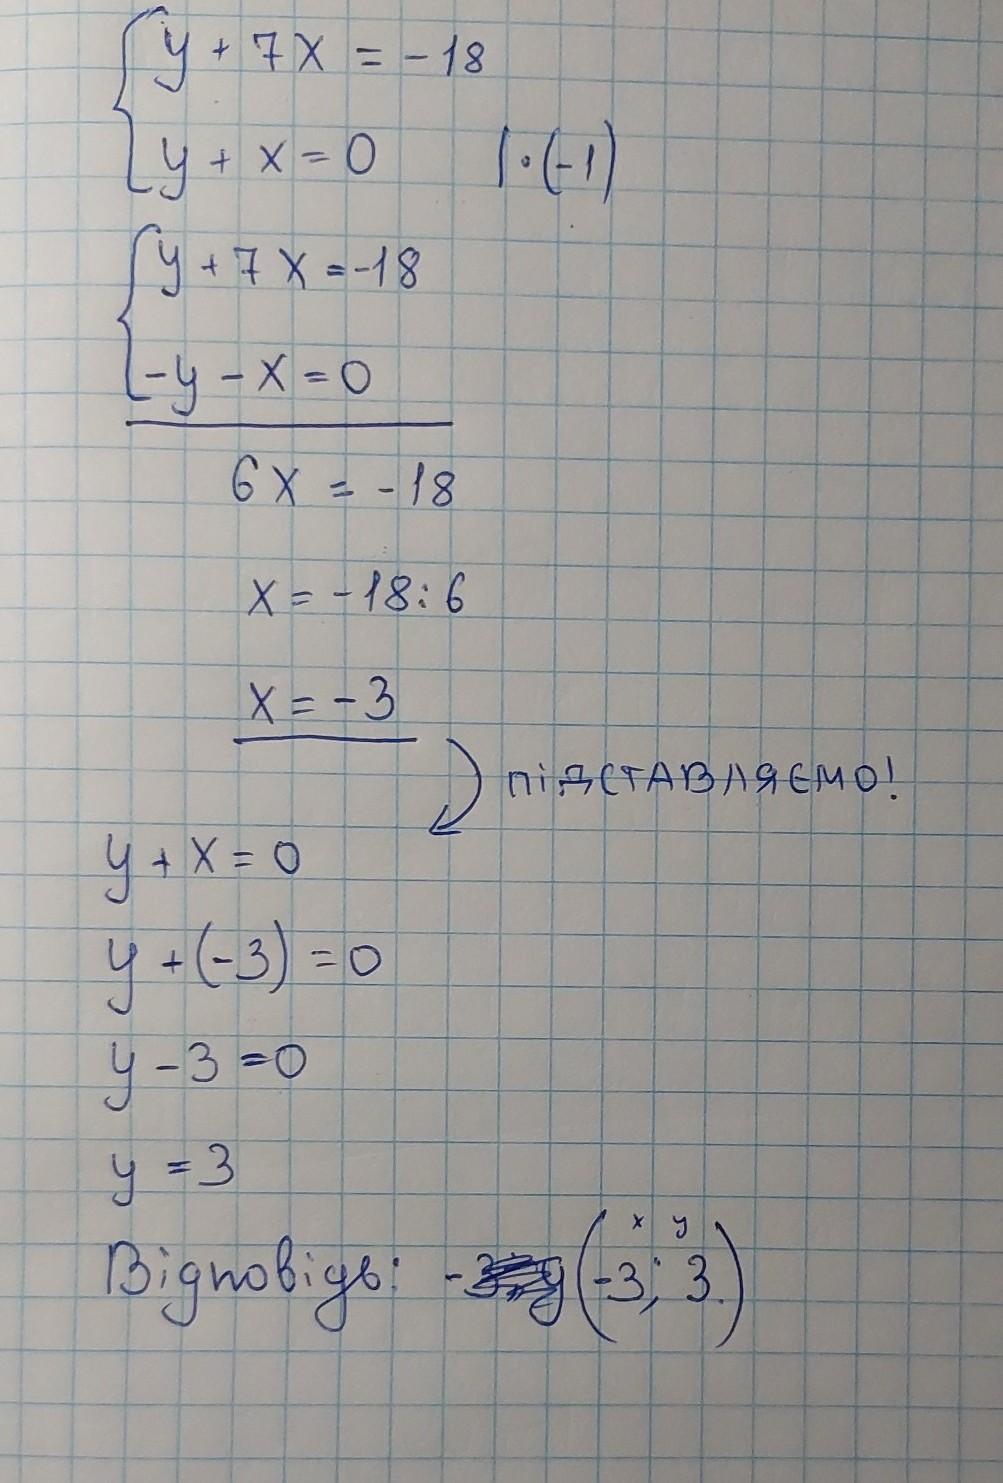 y + 7x = -18
y + x = 0 | · (-1)
y + 7x = -18
-y - x = 0
6x = -18
x = -18 : 6
x = -3
підставляємо!
y + x = 0
y + (-3) = 0
y - 3 = 0
y = 3
x y
Відповідь: (-3; 3.)